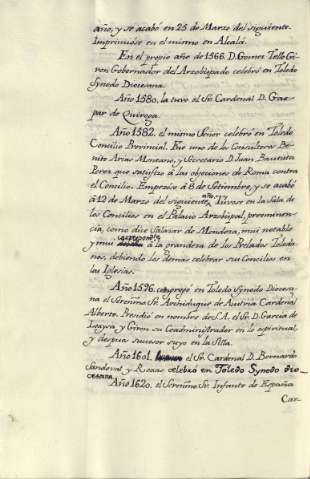 año, y se acabó en 25 de Marzo del siguiente.
Imprimiose en el mismo en Alcalá.
En el propio año de 1566. D. Gomez Tello Gi-
ron Gobernador del Arzobispado celebró en Toledo
Synodo Diocesana.
Año 1580. la tuvo el Sr. Cardenal D. Gas-
par de Quiroga.
Año 1582. el mismo Señor celebró en Toledo
Concilio Provincial. Fue uno de los Consultores Be-
nito Arias Montano, y Secretario D. Juan Bautista
Perez que satisfizo a las objeciones de Roma contra
el Concilio. Empezóse á 8 de Setiembre, y se acabó
á 12 de Marzo del siguiente año. Tuvose en la Sala de
los Concilios en el Palacio Arzobispal, preeminen-
cia, como dice Salazar de Mendoza, mui notable
y mui correspond.te á la grandeza de los Prelados Toleda-
nos, debiendo los demas celebrar sus Concilios en
las Iglesias.
Año 1596. congregó en Toledo Synodo Diocesa-
na el Serenismo Sr. Archiduque de Austria Cardenal
Alberto. Presidió en nombre de S.A. el Sr. D. Garcia de
Loaysa y Giron su Coadministrador en lo espiritual
y despues sucesor suyo en la Silla.
Año 1601. el Sr. Cardenal D. Bernardo
Sandoval y Roxas celebró en Toledo Synodo Dio-
cesana.
Año 1620. el Serenismo Sr. Infante de España
Car-